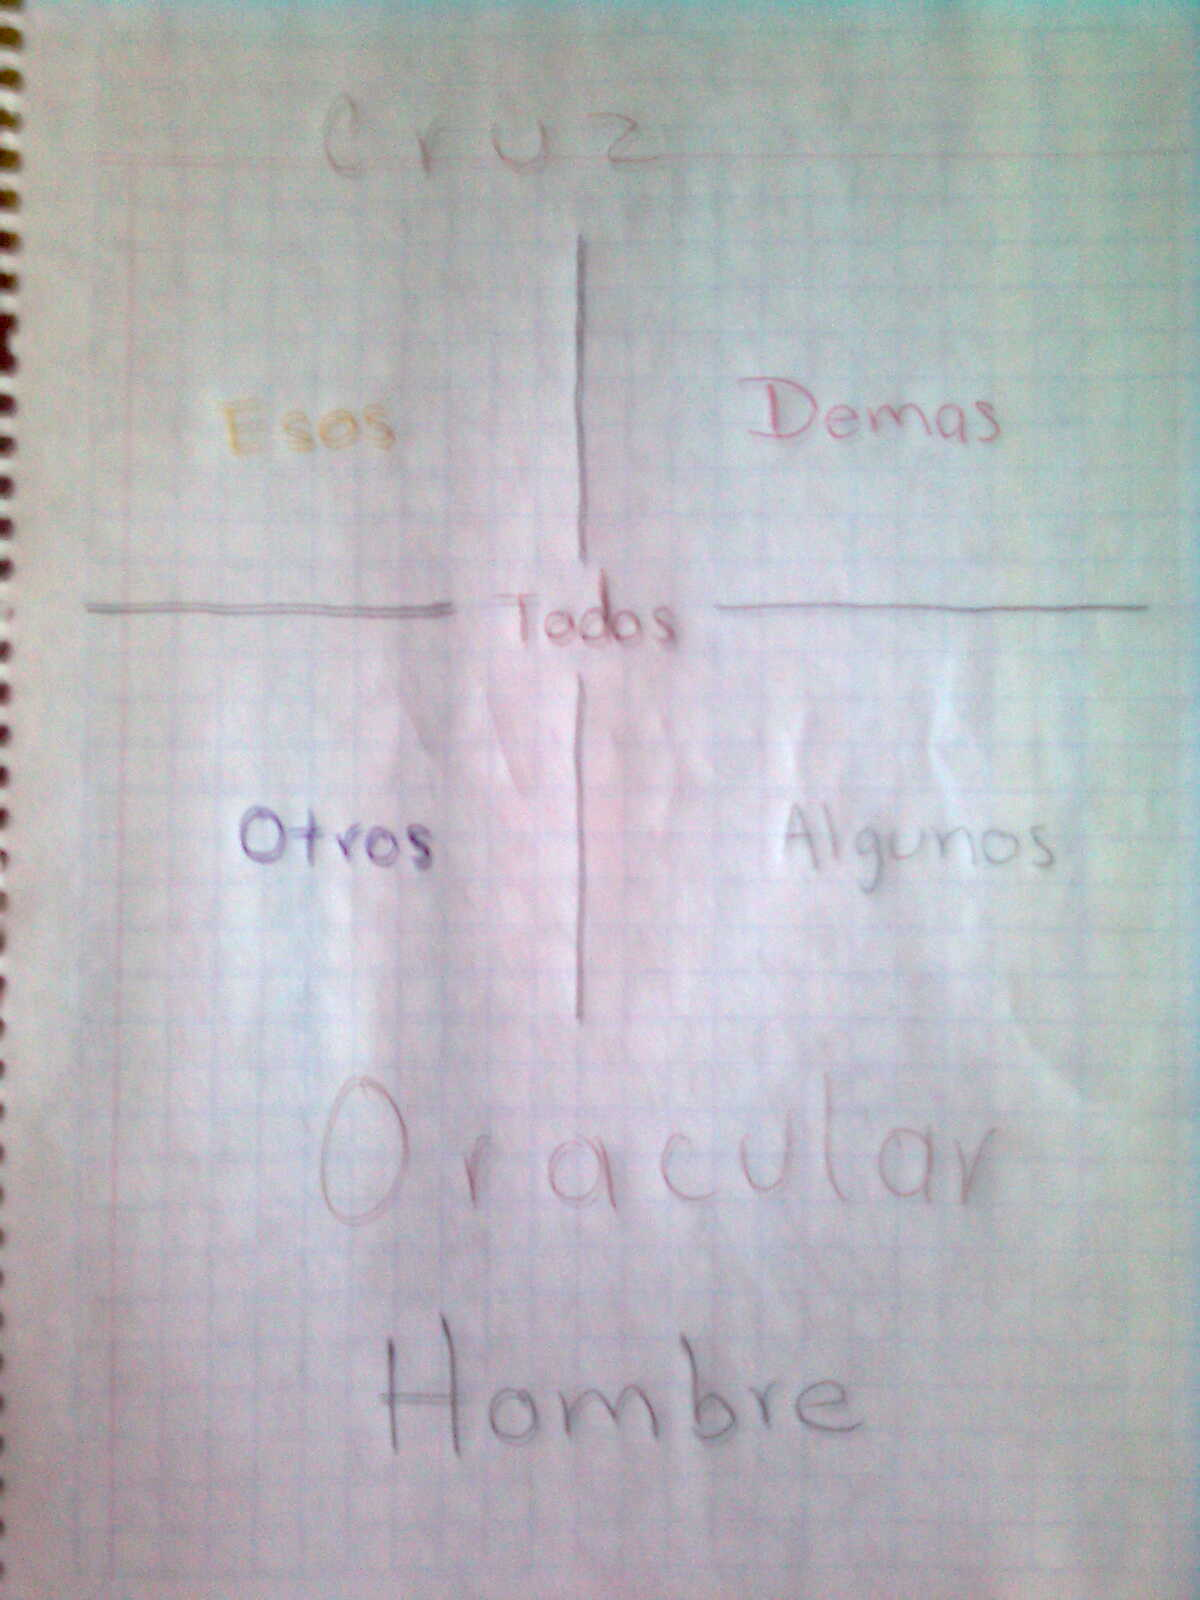 Cruz
Esos Demas
Todos
Otros Algunos
Oracular
Hombre